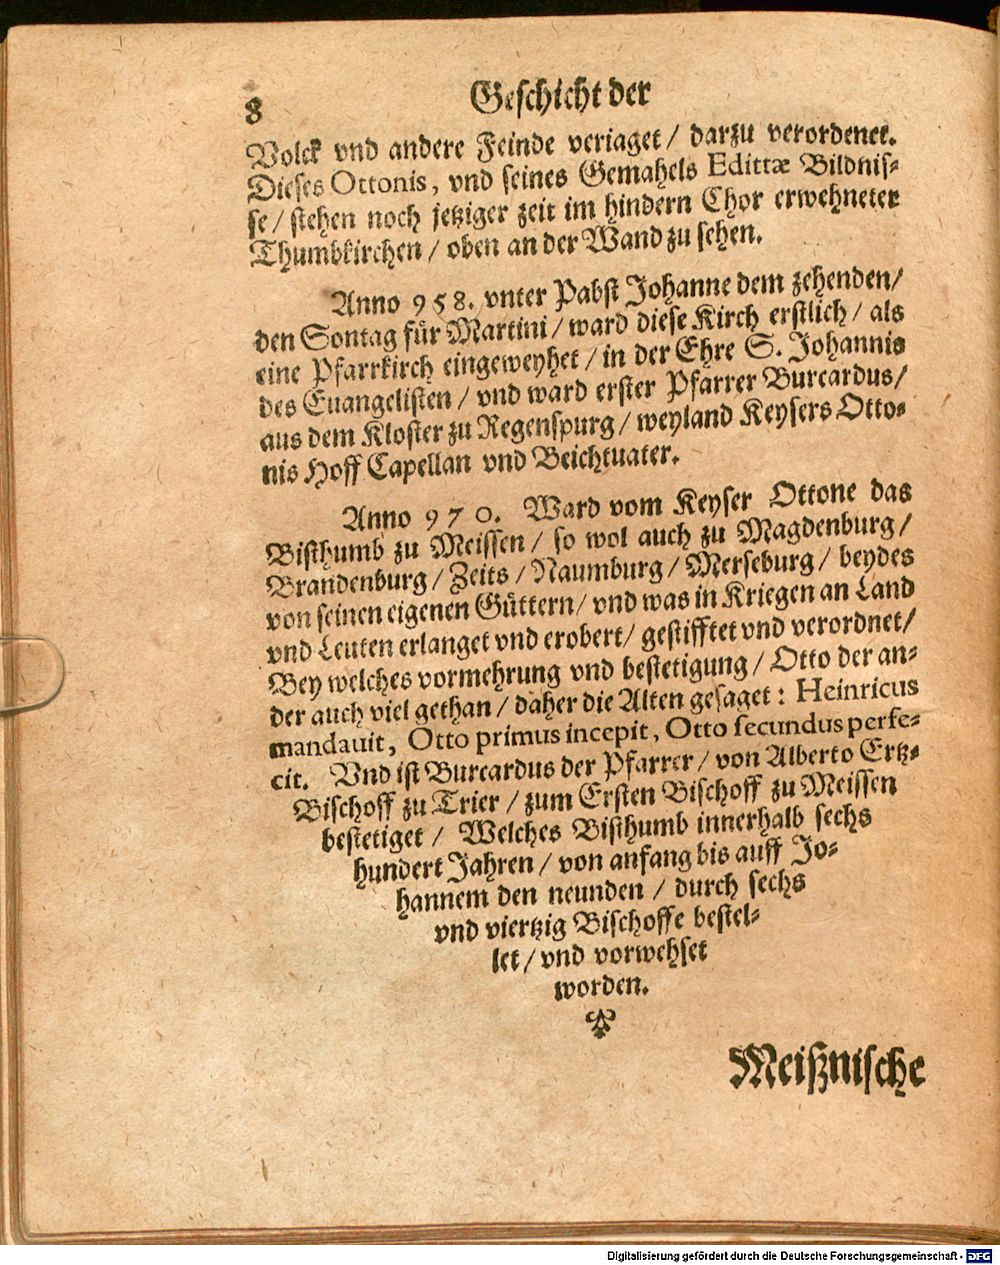 8
Geschicht der
Volck vnd andere Feinde veriaget / darzu verordenet.
Dieses Ottonis, vnd seines Gemahels Edittæ Bildnis-
se / stehen noch jetziger zeit im hindern Chor erwehneter
Thumbkirchen / oben an der Wand zu sehen.
Anno 958. vnter Pabst Johanne dem zehenden /
den Sontag für Martini / ward diese Kirch erstlich / als
eine Pfarrkirch eingeweyhet / in der Ehre S. Johannis
des Euangelisten / vnd ward erster Pfarrer Burcardus /
aus dem Kloster zu Regenspurg / weyland Keysers Otto-
nis Hoff Capellan vnd Beichtuater.
Anno 970. Ward vom Keyser Ottone das
Bisthumb zu Meissen / so wol auch zu Magdenburg /
Brandenburg / Zeits / Naumburg / Merseburg / beydes
von seinen eigenen Güttern / vnd was in Kriegen an Land
vnd Leuten erlanget vnd erobert / gestifftet vnd verordnet /
Bey welches vormehrung vnd bestetigung / Otto der an-
der auch viel gethan / daher die Alten gesaget : Heinricus
mandauit, Otto primus incepit, Otto secundus perfe-
cit. Vnd ist Burcardus der Pfarrer / von Alberto Ertz-
Bischoff zu Trier / zum Ersten Bischoff zu Meissen
bestetiget / Welches Bisthumb innerhalb sechs
hundert Jahren / von anfang bis auff Jo-
hannem den neunden / durch sechs
vnd viertzig Bischoffe bestel-
let / vnd vorwehset
worden.
Meißnische
Digitalisierung gefördert durch die Deutsche Forschungsgemeinschaft - DFG